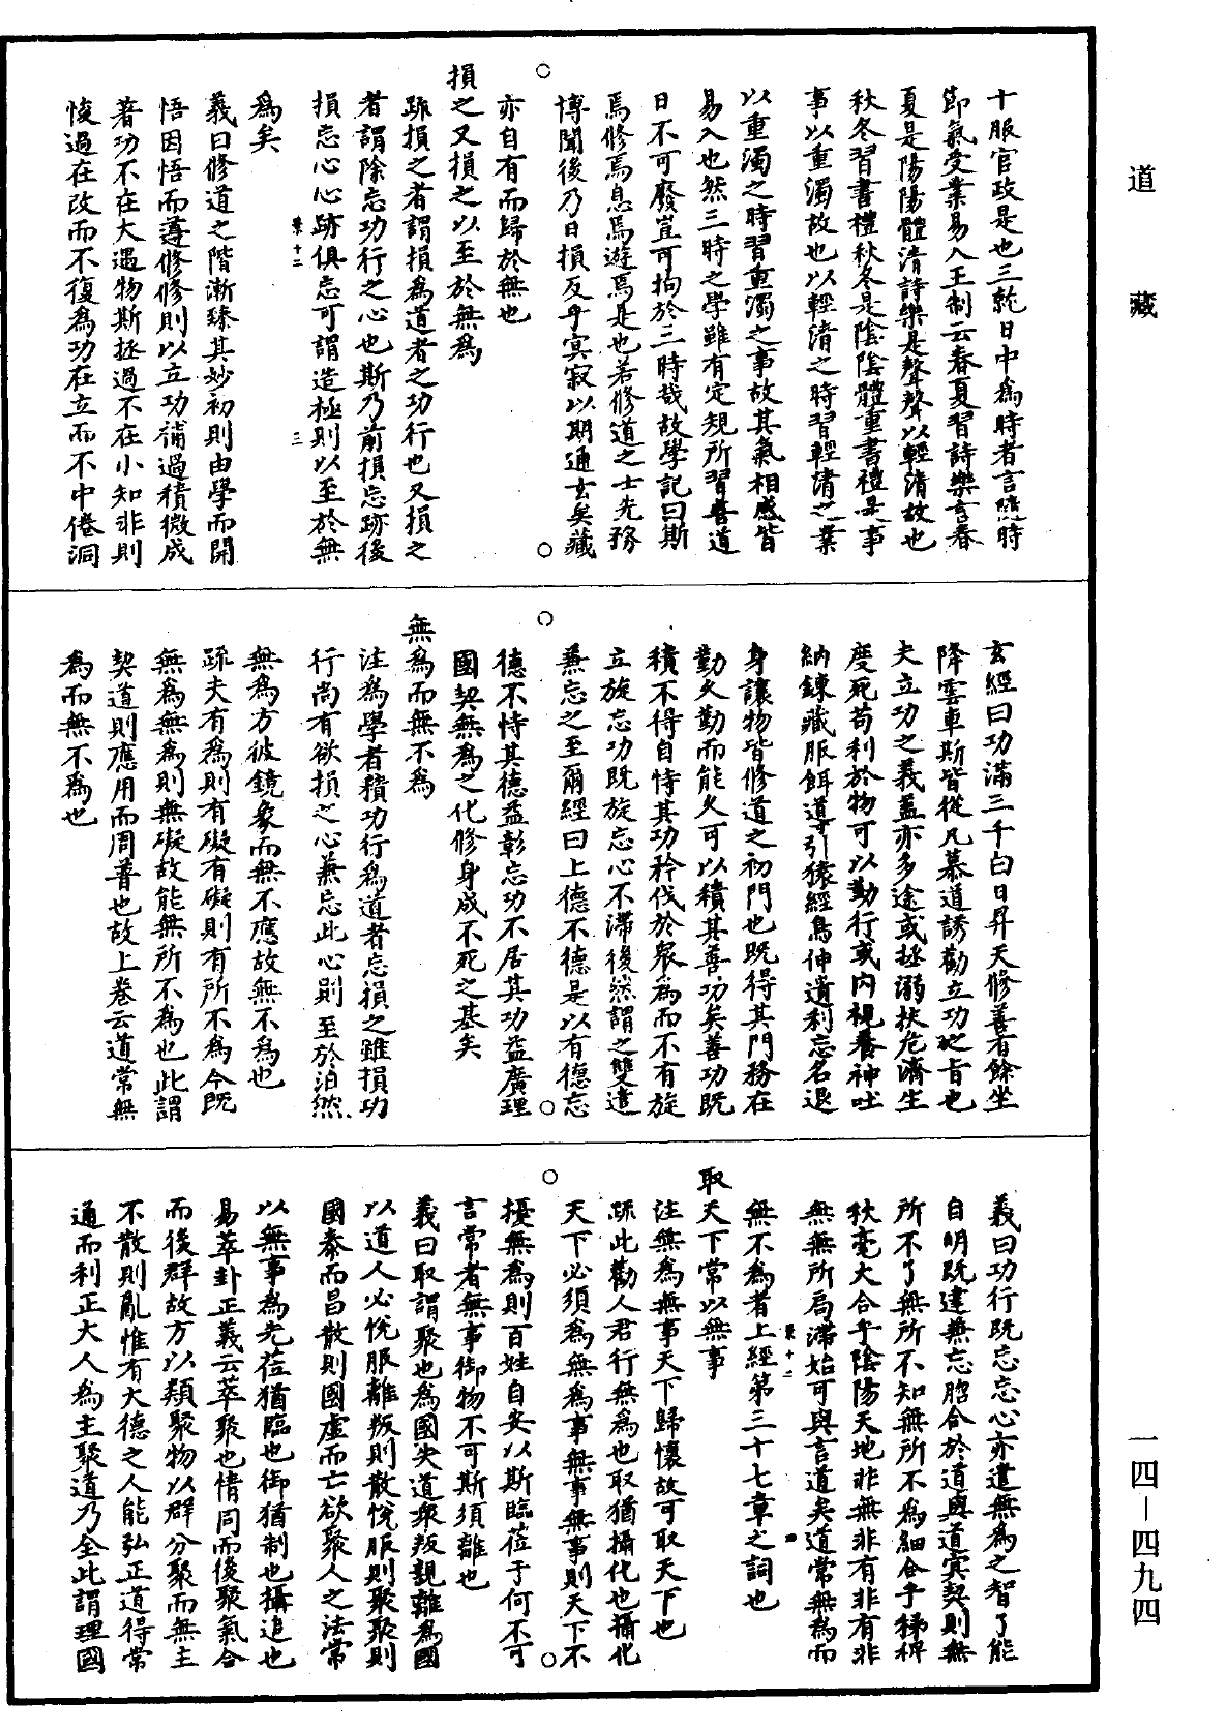 十服官政是也三就日中為時者言隨時
節氣受業易入王制云春夏習詩樂言春
夏是陽陽體清詩樂是聲聲以輕清故也
秋冬習書禮秋冬是陰陰體重書禮是事
事以重濁故也以輕清之時習輕清之業
以重濁之時習重濁之事故其氣相感皆
易入也然三時之學雖有定規所習善道
日不可廢豈可拘於三時哉故學記曰斯
焉修焉息焉遊焉是也若修道之士先務
博聞後乃日損反乎冥寂以期通玄矣藏
亦自有而歸於無也
損之又損之以至於無為
疏損之者謂損為道者之功行也又損之
者謂除忘功行之心也斯乃前損忘跡後
損忘心心跡俱忘可謂造極則以至於無
為矣
義曰修道之階漸臻其妙初則由學而開
悟因悟而遵修修則以立功補過積微成
著功不在大遇物斯拯過不在小知非則
悛過在改而不復為功在立而不中倦洞
玄經曰功滿三千白日昇天修善有餘坐
降雲車斯皆從凡慕道誘勸立功之旨也
夫立功之義蓋亦多途或拯溺扶危濟生
度死苟利於物可以勤行或內視養神吐
納鍊藏服餌道引猿經鳥伸遺利忘名退
身讓物皆修道之初門也既得其門務在
勤久勤而能久可以積其善功矣善功既
積不得自恃其功矜伐於衆為而不有旋
立旋忘功既旋忘心不滯後然謂之雙遣
兼忘之至爾經曰上德不德是以有德忘
德不恃其德益彰忘功不居其功益廣理
國契無為之化修身成不死之基矣
無為而無不為
注為學者積功行為道者忘損之雖損功
行尚有欲損之心兼忘此心則至於泊然
無為方彼鏡象而無不應故無不為也
疏夫有為則有礙有礙則有所不為今既
無為無為則無礙故能無所不為也此謂
契道則應用而周普也故上卷云道常無
為而無不為也
義曰功行既忘忘心亦遣無為之智了能
自明既建兼忘脗合於道與道冥契則無
所不了無所不知無所不為細合乎稊稗
秋毫大合乎陰陽天地非無非有非有非
無無所局滯始可與言道矣道常無為而
無不為者上經第三十七章之詞也
取天下常以無事
注無為無事天下歸懷故可取天下也
疏此勸人君行無為也取猶攝化也攝化
天下必須為無為事無事無事則天下不
擾無為則百姓自安以斯臨莅于何不可
言常者無事御物不可斯須離也
義曰取謂聚也為國失道衆叛親離為國
以道人必悅服離叛則散悅服則聚聚則
國泰而昌散則國虛而亡欲聚人之法常
以無事為先莅猶臨也御猶制也攝追也
易萃卦正義云萃聚也情同而後聚氣合
而後群故方以類聚物以群分聚而無主
不散則亂惟有大德之人能弘正道得常
通而利正大人為主聚道乃全此謂理國
道藏
一四－四九四